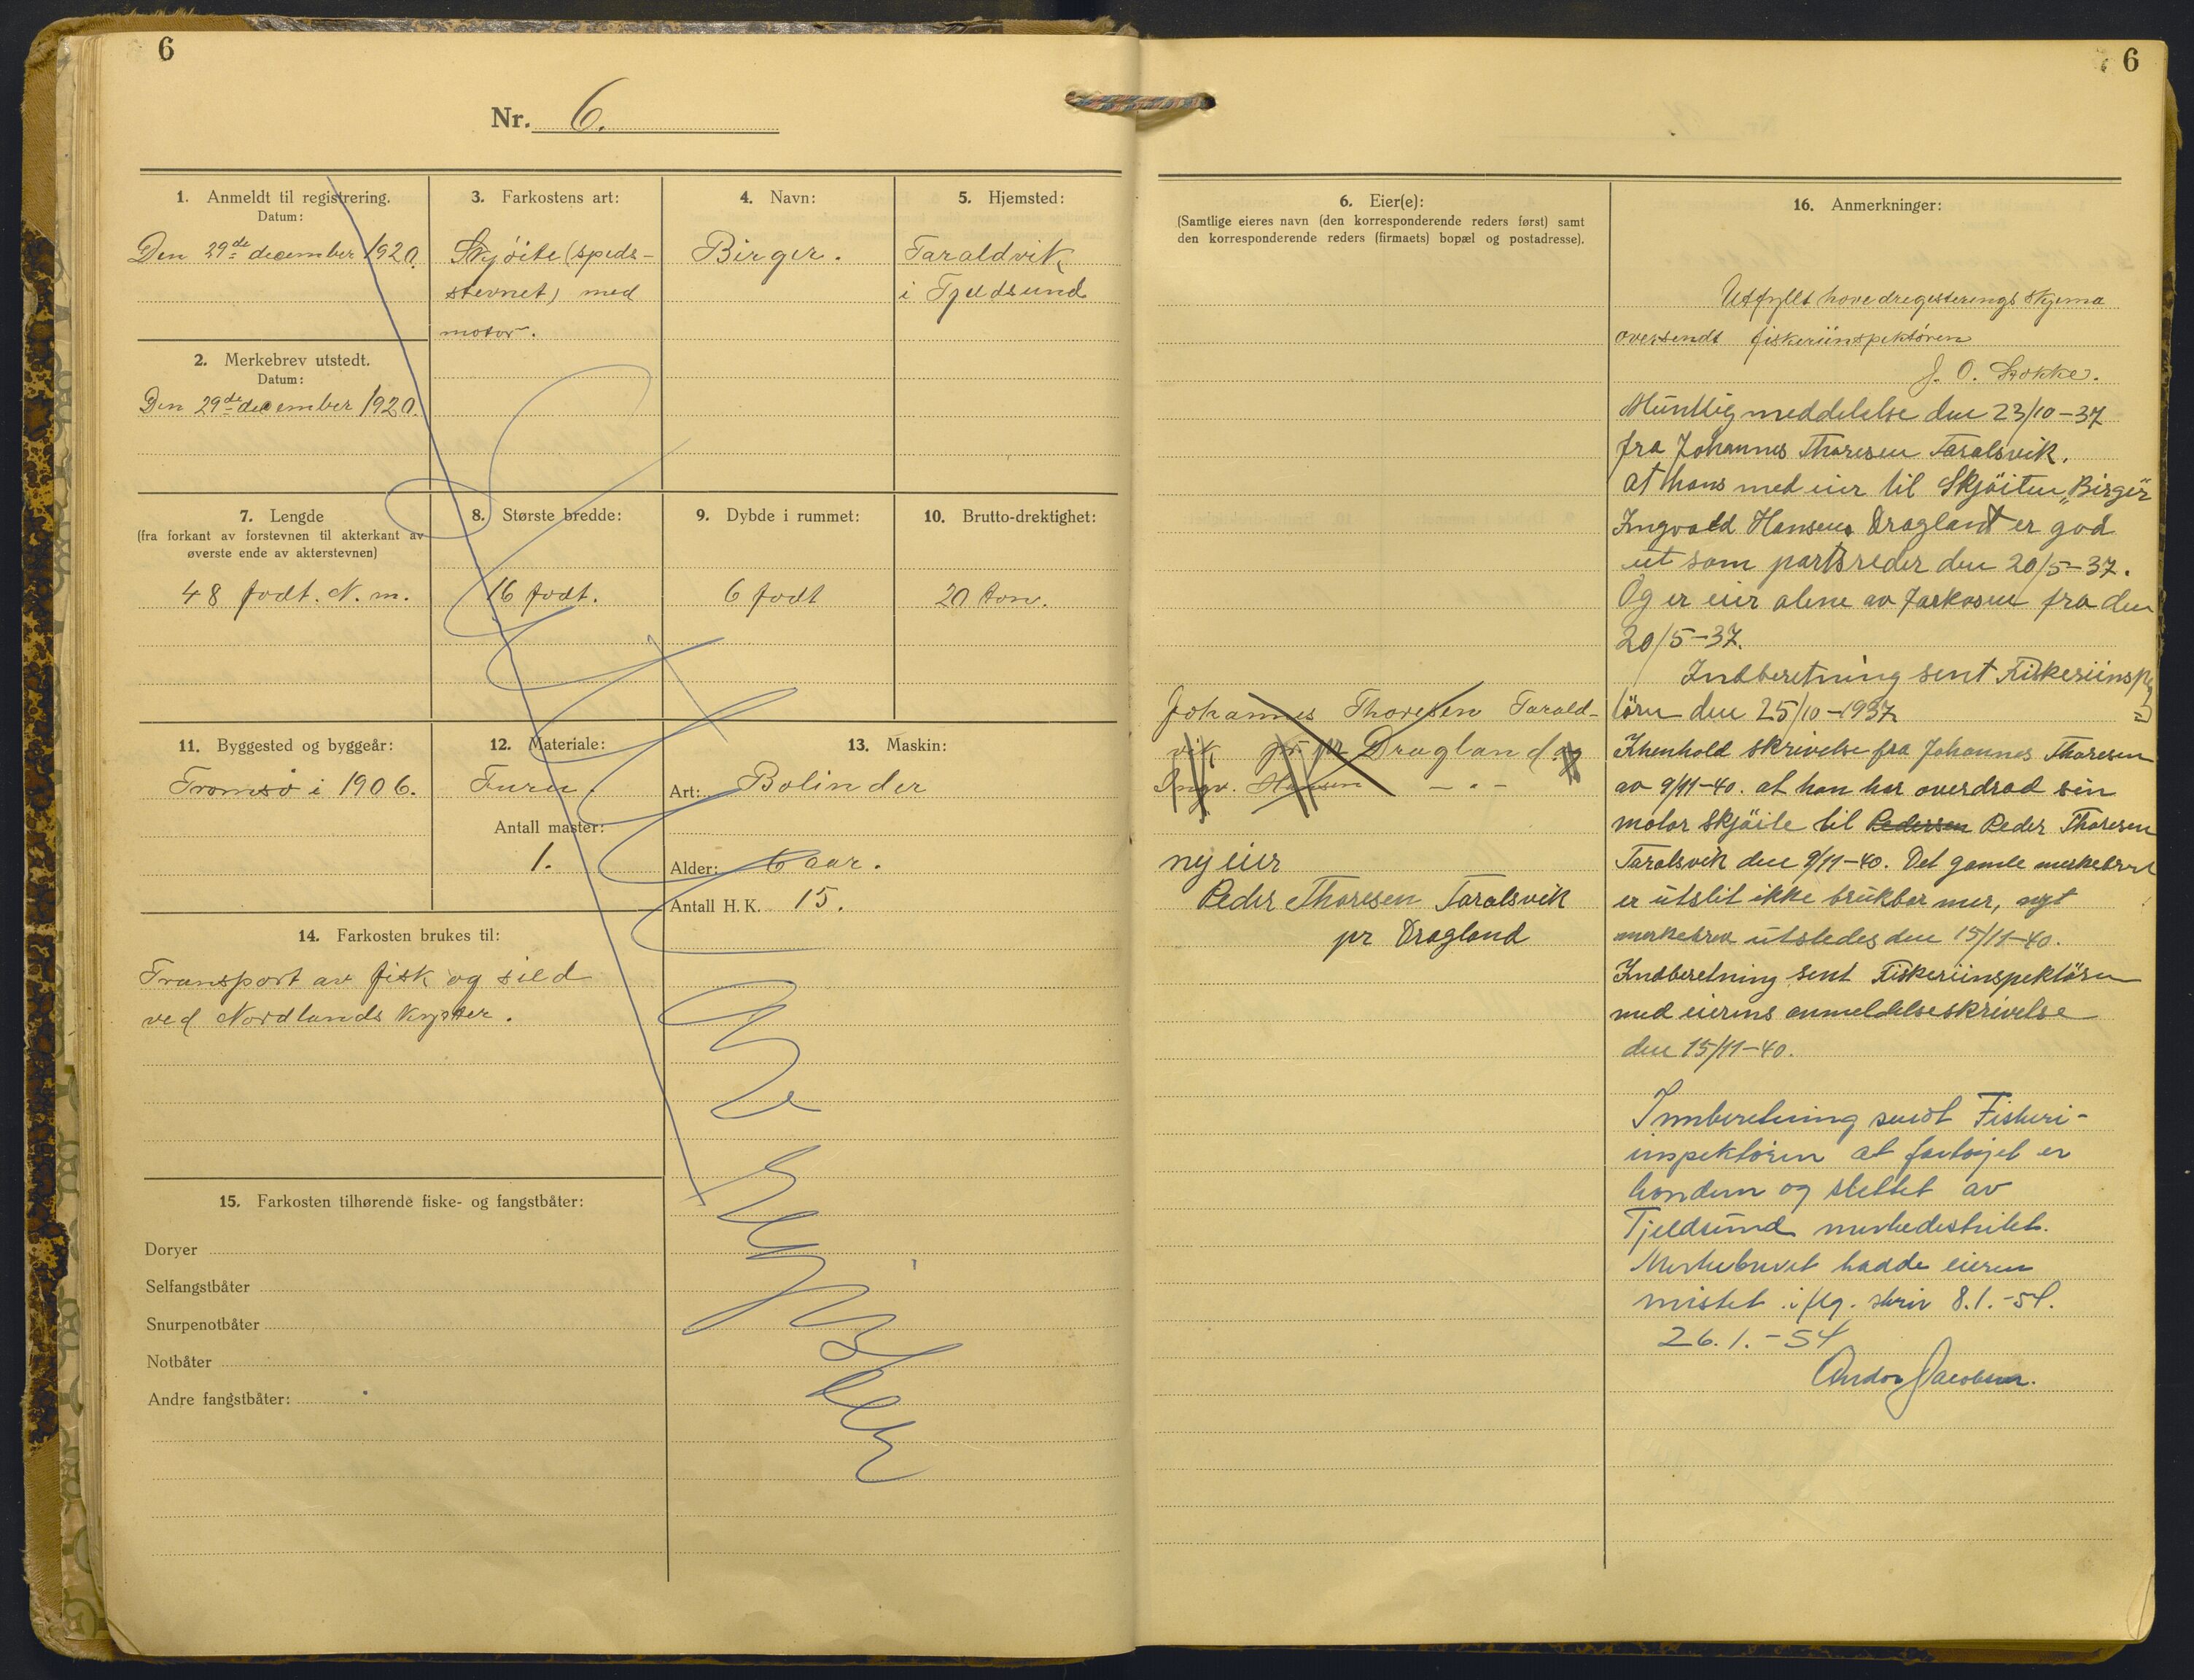 6
Nr. 6.
1. Anmeldt til registrering.
Datum:
Den 29de december 1920.
2. Merkebrev utstedt.
Datum:
Den 29de december 1920.
3. Farkostens art:
Skjöite (spids-
stevnet) med
motor.
4. Navn:
Birger.
5. Hjemsted:
Taraldvik
i Tjeldsund
7. Lengde
(fra forkant av forstevnen til akterkant av
øverste ende av akterstevnen)
48 fodt. N. m.
8. Største bredde:
16 fodt.
9. Dybde i rummet:
6 fodt
10. Brutto-drektighet:
20 ton.
11. Byggested og byggeår:
Tromsö i 1906.
12. Materiale:
Furu.
Antall master:
1.
13. Maskin:
Art: Bolinder
Alder: 6 aar.
Antall H. K. 15.
14. Farkosten brukes til:
Transport av fisk og sild
ved Nordlands kyster.
15. Farkosten tilhørende fiske- og fangstbåter:
Doryer
Selfangstbåter
Snurpenotbåter
Notbåter
Andre fangstbåter:
6
6. Eier(e):
(Samtlige eieres navn (den korresponderende reders først) samt
den korresponderende reders (firmaets) bopæl og postadresse).
Johannes Thoresen Tarald-
vik pr. Dragland og
Ingv. Hansen - " -
ny eier
Peder Thoresen Taralsvik
pr Dragland
16. Anmerkninger:
Utfyllt hovedregisterings skjema
oversendt fiskeriinspektören
J. O.
Muntlig meddelelse den 23/10-37
fra Johannes Thoresen Taralsvik.
at hans med eier til Skjöiten "Birger"
Ingvald Hansen Dragland er gåd
ut som partsreder den 20/5-37.
Og er eier alene av farkosen fra den
20/5-37.
Indberetning sent Fiskeriinspek
tören den 25/10-1937
I henhold skrivelse fra Johannes Thoresen
av 9/11-40. at han har overdrad sin
motor skjöite til Pedersen Peder Thoresen
Taralsvik den 9/11-40. Det gamle merkebrev
er utslit ikke brukbar mer, nyt
merkebrev utstedes den 15/11-40.
Indberetning sent Fiskeriinspektören
med eierens anmeldelseskrivelse
den 15/11-40.
Innberetning sendt Fiskeri-
inspektören at fartøyet er
kondem og slettet av
Tjeldsund merkedistrikt.
Merkebrevet hadde eieren
mistet iflg. skriv 8.1.-54.
26.1.-54
Andor Jacobsen.